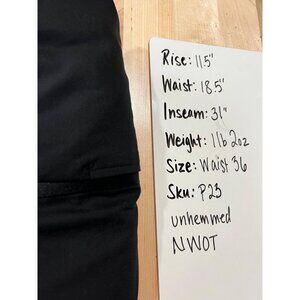 Rise: 11.5"
Waist: 18.5"
Inseam: 31"
Weight: 1 lb 2oz
Size: Waist 36
Sku: P23
unhemmed
NWOT